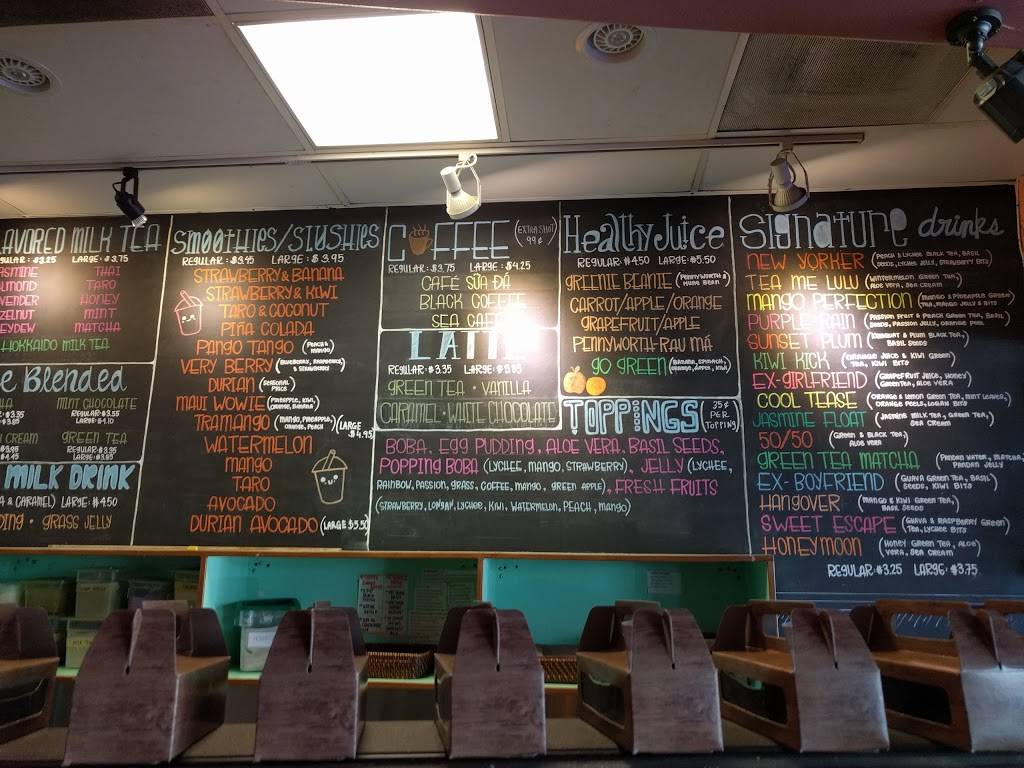 AVORED MILK TEA
REGULAR: $3.25 LARGE: $3.75
JASMINE THAI
ALMOND TARO
VENDER HONEY
ZELNUT MINT
EYDEW MATCHA
HOKKAIDO MILK TEA
e Blended
MINT CHOCOLATE
REGULAR: $3.55
LARGE: $4.10
CREAM GREEN TEA
REGULAR: $3.35
MILK DRINK
& CARAMEL) LARGE: $4.50
DING • GRASS JELLY
Smoothies/Slushies
REGULAR: $3.45 LARGE: $3.95
STRAWBERRY & BANANA
STRAWBERRY & KIWI
TARO & COCONUT
PIÑA COLADA
PANGO TANGO (PEACH & MANGO)
VERY BERRY (BLUEBERRY, RASPBERRY, & STRAWBERRY)
DURIAN (SEASONAL PRICE)
MAUI WOWIE (PINEAPPLE, KIWI, ORANGE, BANANA)
TRAMANGO (MANGO, PINEAPPLE, ORANGE, PEACH)
(LARGE $4.95)
WATERMELON
MANGO
TARO
AVOCADO
DURIAN AVOCADO (LARGE $5.50)
COFFEE (EXTRA SHOT 99¢)
REGULAR: $3.75 LARGE: $4.25
CAFÉ SỮA ĐÁ
BLACK COFFEE
SEA CAFÉ
LATTE
REGULAR: $3.35 LARGE: $3.85
GREEN TEA • VANILLA
CARAMEL • WHITE CHOCOLATE
Healthy Juice
REGULAR: $4.50 LARGE: $5.50
GREENIE BEANIE (PENNYWORTH & MUNG BEAN)
CARROT/APPLE/ORANGE
GRAPEFRUIT/APPLE
PENNYWORTH-RAU MÁ
GO GREEN (BANANA, SPINACH, ORANGE, APPLE, KIWI)
TOPPINGS 35¢ PER TOPPING
BOBA, EGG PUDDING, ALOE VERA, BASIL SEEDS,
POPPING BOBA (LYCHEE, MANGO, STRAWBERRY), JELLY (LYCHEE,
RAINBOW, PASSION, GRASS, COFFEE, MANGO, GREEN APPLE), FRESH FRUITS
(STRAWBERRY, LONGAN, LYCHEE, KIWI, WATERMELON, PEACH, MANGO)
Signature drinks
NEW YORKER (PEACH & LYCHEE BLACK TEA, BASIL SEEDS, LYCHEE JELLY, STRAWBERRY BITS)
TEA ME LULU (WINTERMELON GREEN TEA, ALOE VERA, SEA CREAM)
MANGO PERFECTION (MANGO & PINEAPPLE GREEN TEA, MANGO JELLY & BITS)
PURPLE RAIN (PASSION FRUIT & PEACH GREEN TEA, BASIL SEEDS, PASSION JELLY, ORANGE PEEL)
SUNSET PLUM (KUMQUAT & PLUM BLACK TEA, BASIL SEEDS)
KIWI KICK (ORANGE JUICE & KIWI GREEN TEA, KIWI BITS)
EX-GIRLFRIEND (GRAPEFRUIT JUICE, HONEY GREEN TEA, ALOE VERA)
COOL TEASE (ORANGE & LEMON GREEN TEA, MINT LEAVES, ORANGE PEELS, LOGAN BITS)
JASMINE FLOAT (JASMINE MILK TEA, GREEN TEA, SEA CREAM)
50/50 (GREEN & BLACK TEA, ALOE VERA)
GREEN TEA MATCHA (PANDAN WATER, MATCHA, PANDAN JELLY)
EX-BOYFRIEND (GUAVA GREEN TEA, BASIL SEEDS, KIWI BITS)
HANGOVER (MANGO & KIWI GREEN TEA, BASIL SEEDS)
SWEET ESCAPE (GUAVA & RASPBERRY GREEN TEA, LYCHEE BITS)
HONEYMOON (HONEY GREEN TEA, ALOE VERA, SEA CREAM)
REGULAR: $3.25 LARGE: $3.75